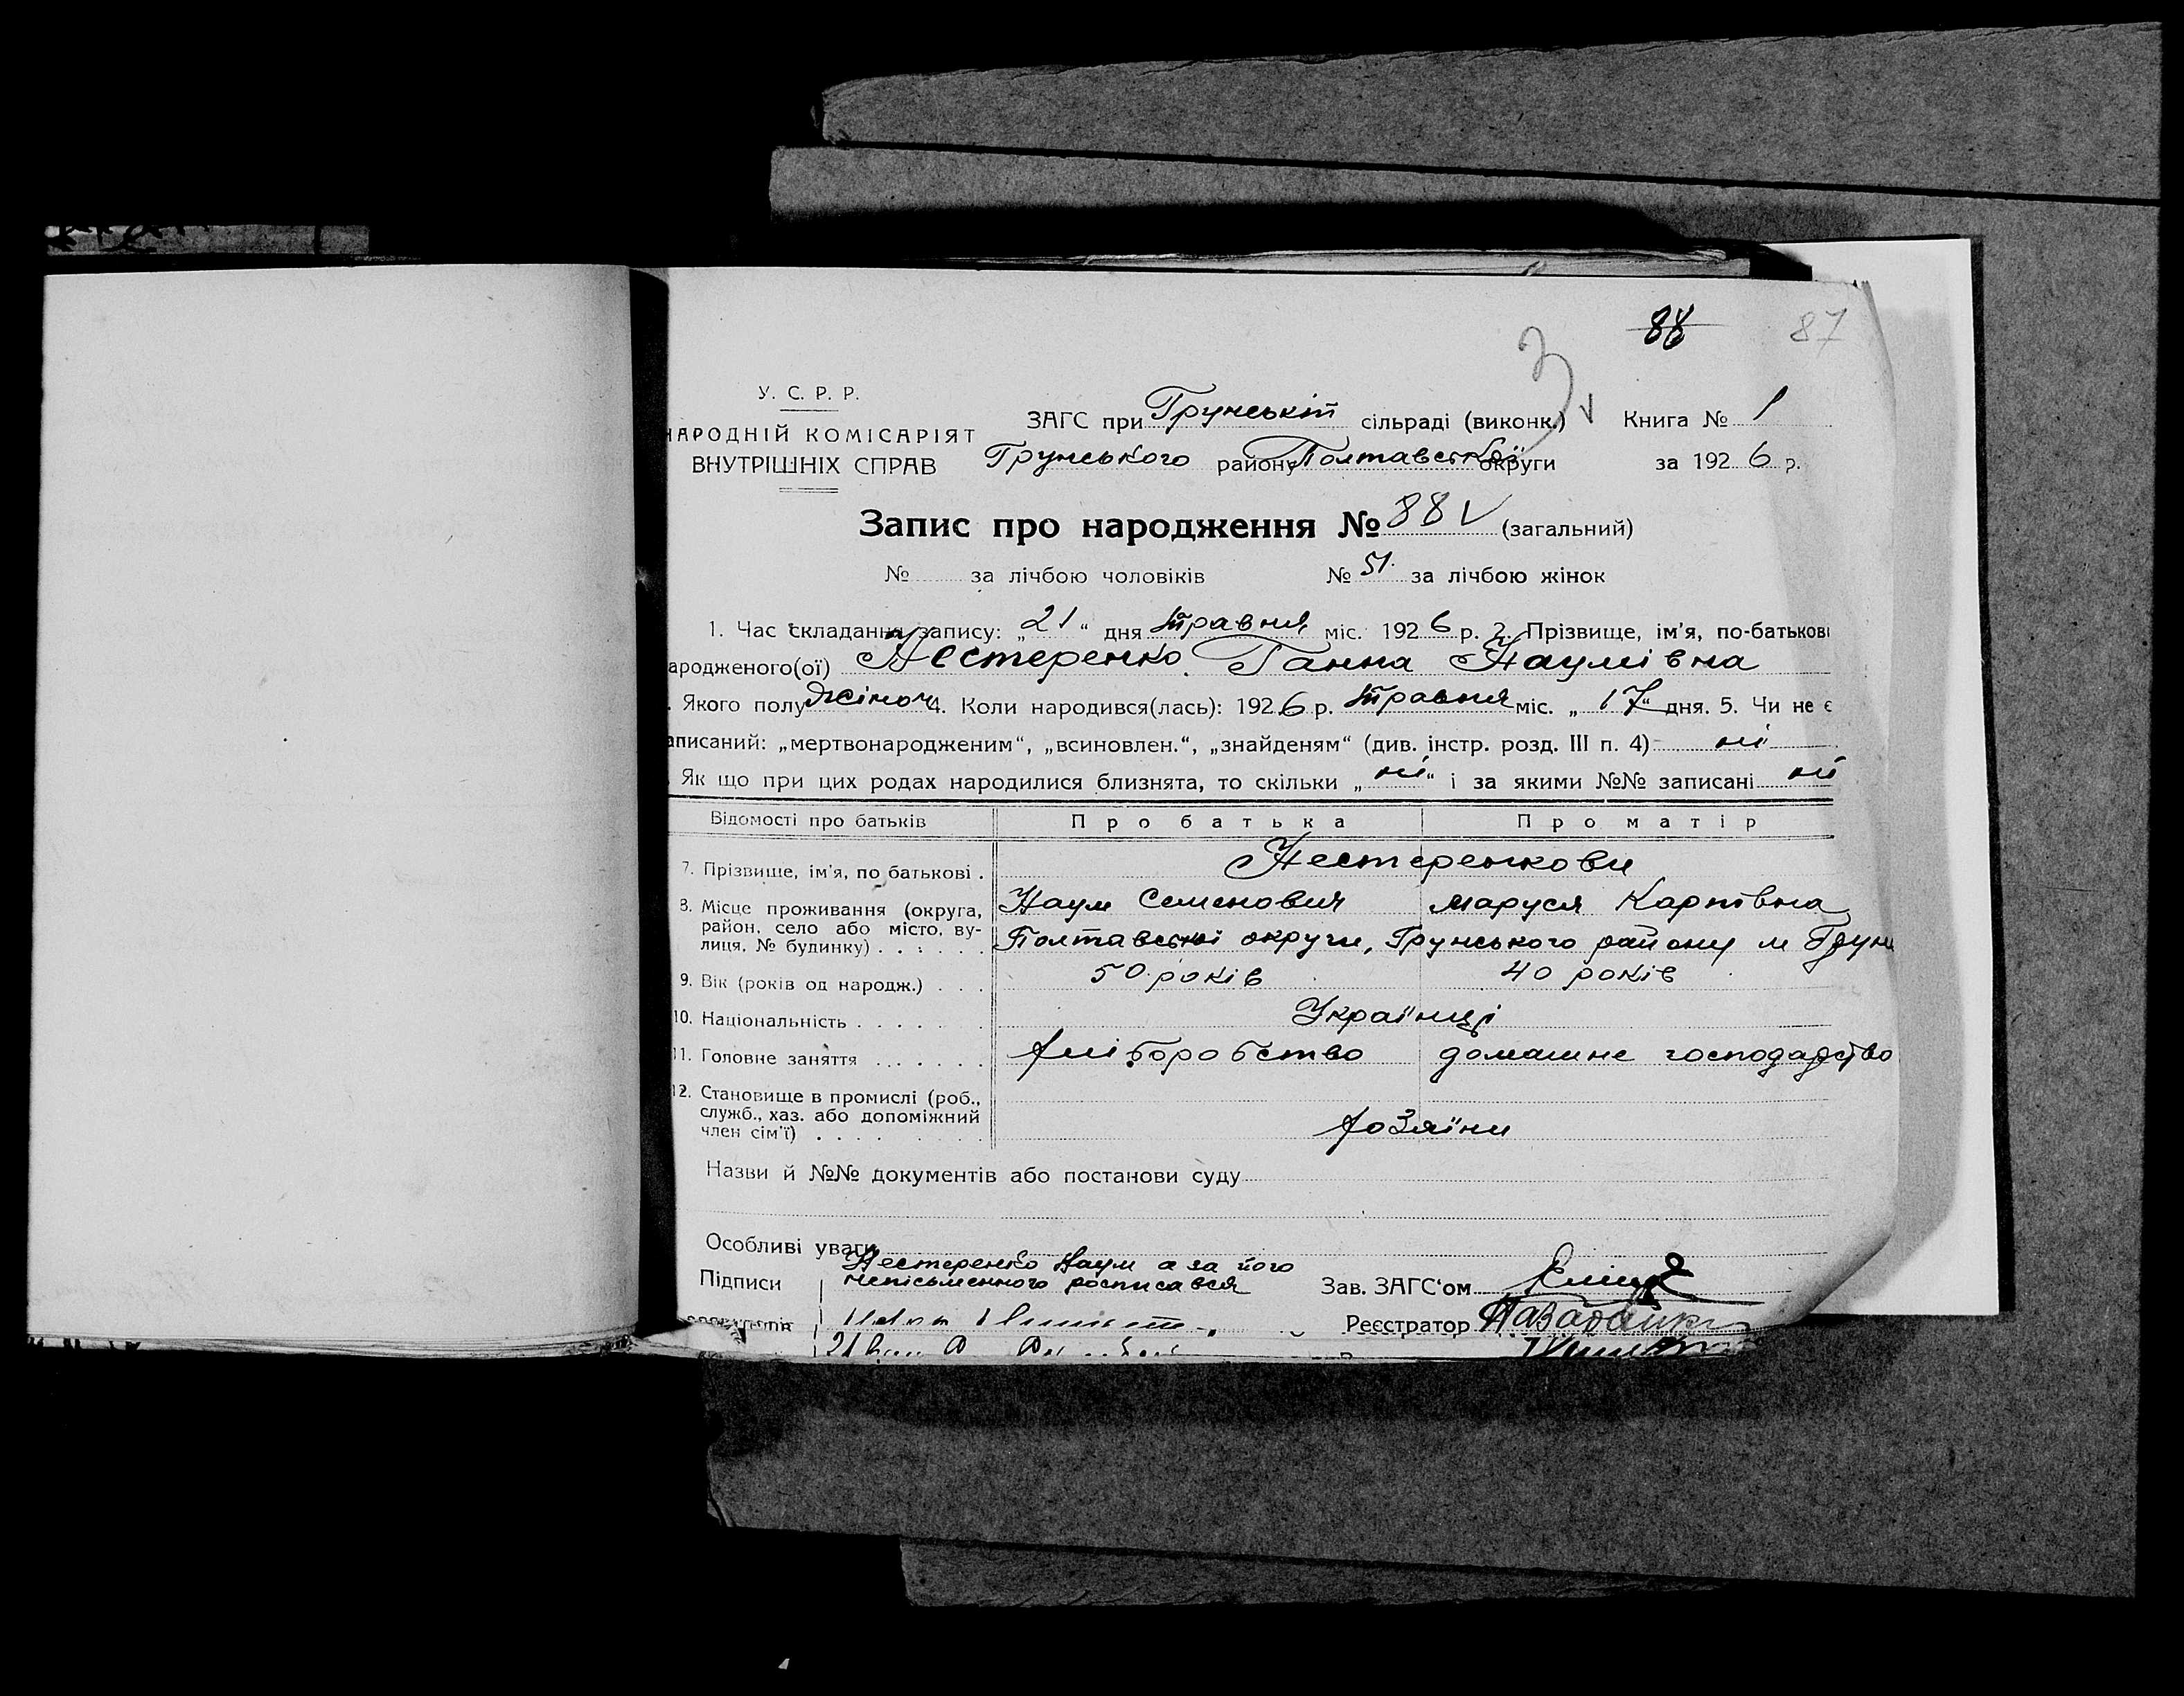 88 87
3
У. С. Р. Р.
НАРОДНІЙ КОМІСАРІЯТ
ВНУТРІШНІХ СПРАВ
ЗАГС при Грунській сільраді (виконк.) V Книга № 1
Грунського району Полтавської округи за 1926 р.
Запис про народження № 88 V (загальний)
№ за лічбою чоловіків № 51. за лічбою жінок
1. Час складання запису: „21“ дня травня міс. 1926 р. 2. Прізвище, ім'я, по-батькові
ародженого(ої) Нестеренко Ганна Наумівна
. Якого полу жіноч 4. Коли народився(лась): 1926 р. травня міс. „17“ дня. 5. Чи не є
аписаний: „мертвонародженим“, „всиновлен.“, „знайденям“ (див. інстр. розд. III п. 4) ні
. Як що при цих родах народилися близнята, то скільки „ні“ і за якими №№ записані ні
Відомості про батьків Про батька Про матір
7. Прізвище, ім'я, по батькові . Нестеренкови
Наум Семенович маруся Карпівна
8. Місце проживання (округа,
район, село або місто, ву-
лиця, № будинку) . . . . . Полтавської округи, Грунського району м Грунь
9. Вік (років од народж.) . . . 50 років 40 років
10. Національність . . . . . Українці
11. Головне заняття . . . . . . хліборобство домашнє господарство
12. Становище в промислі (роб.,
служб., хаз. або допоміжний
член сім'ї) . . . . . . . хозяїни
Назви й №№ документів або постанови суду
Особливі уваги
Нестеренко Наум а за його
Підписи неписьменного росписався
Зав. ЗАГС‘ом
Реєстратор